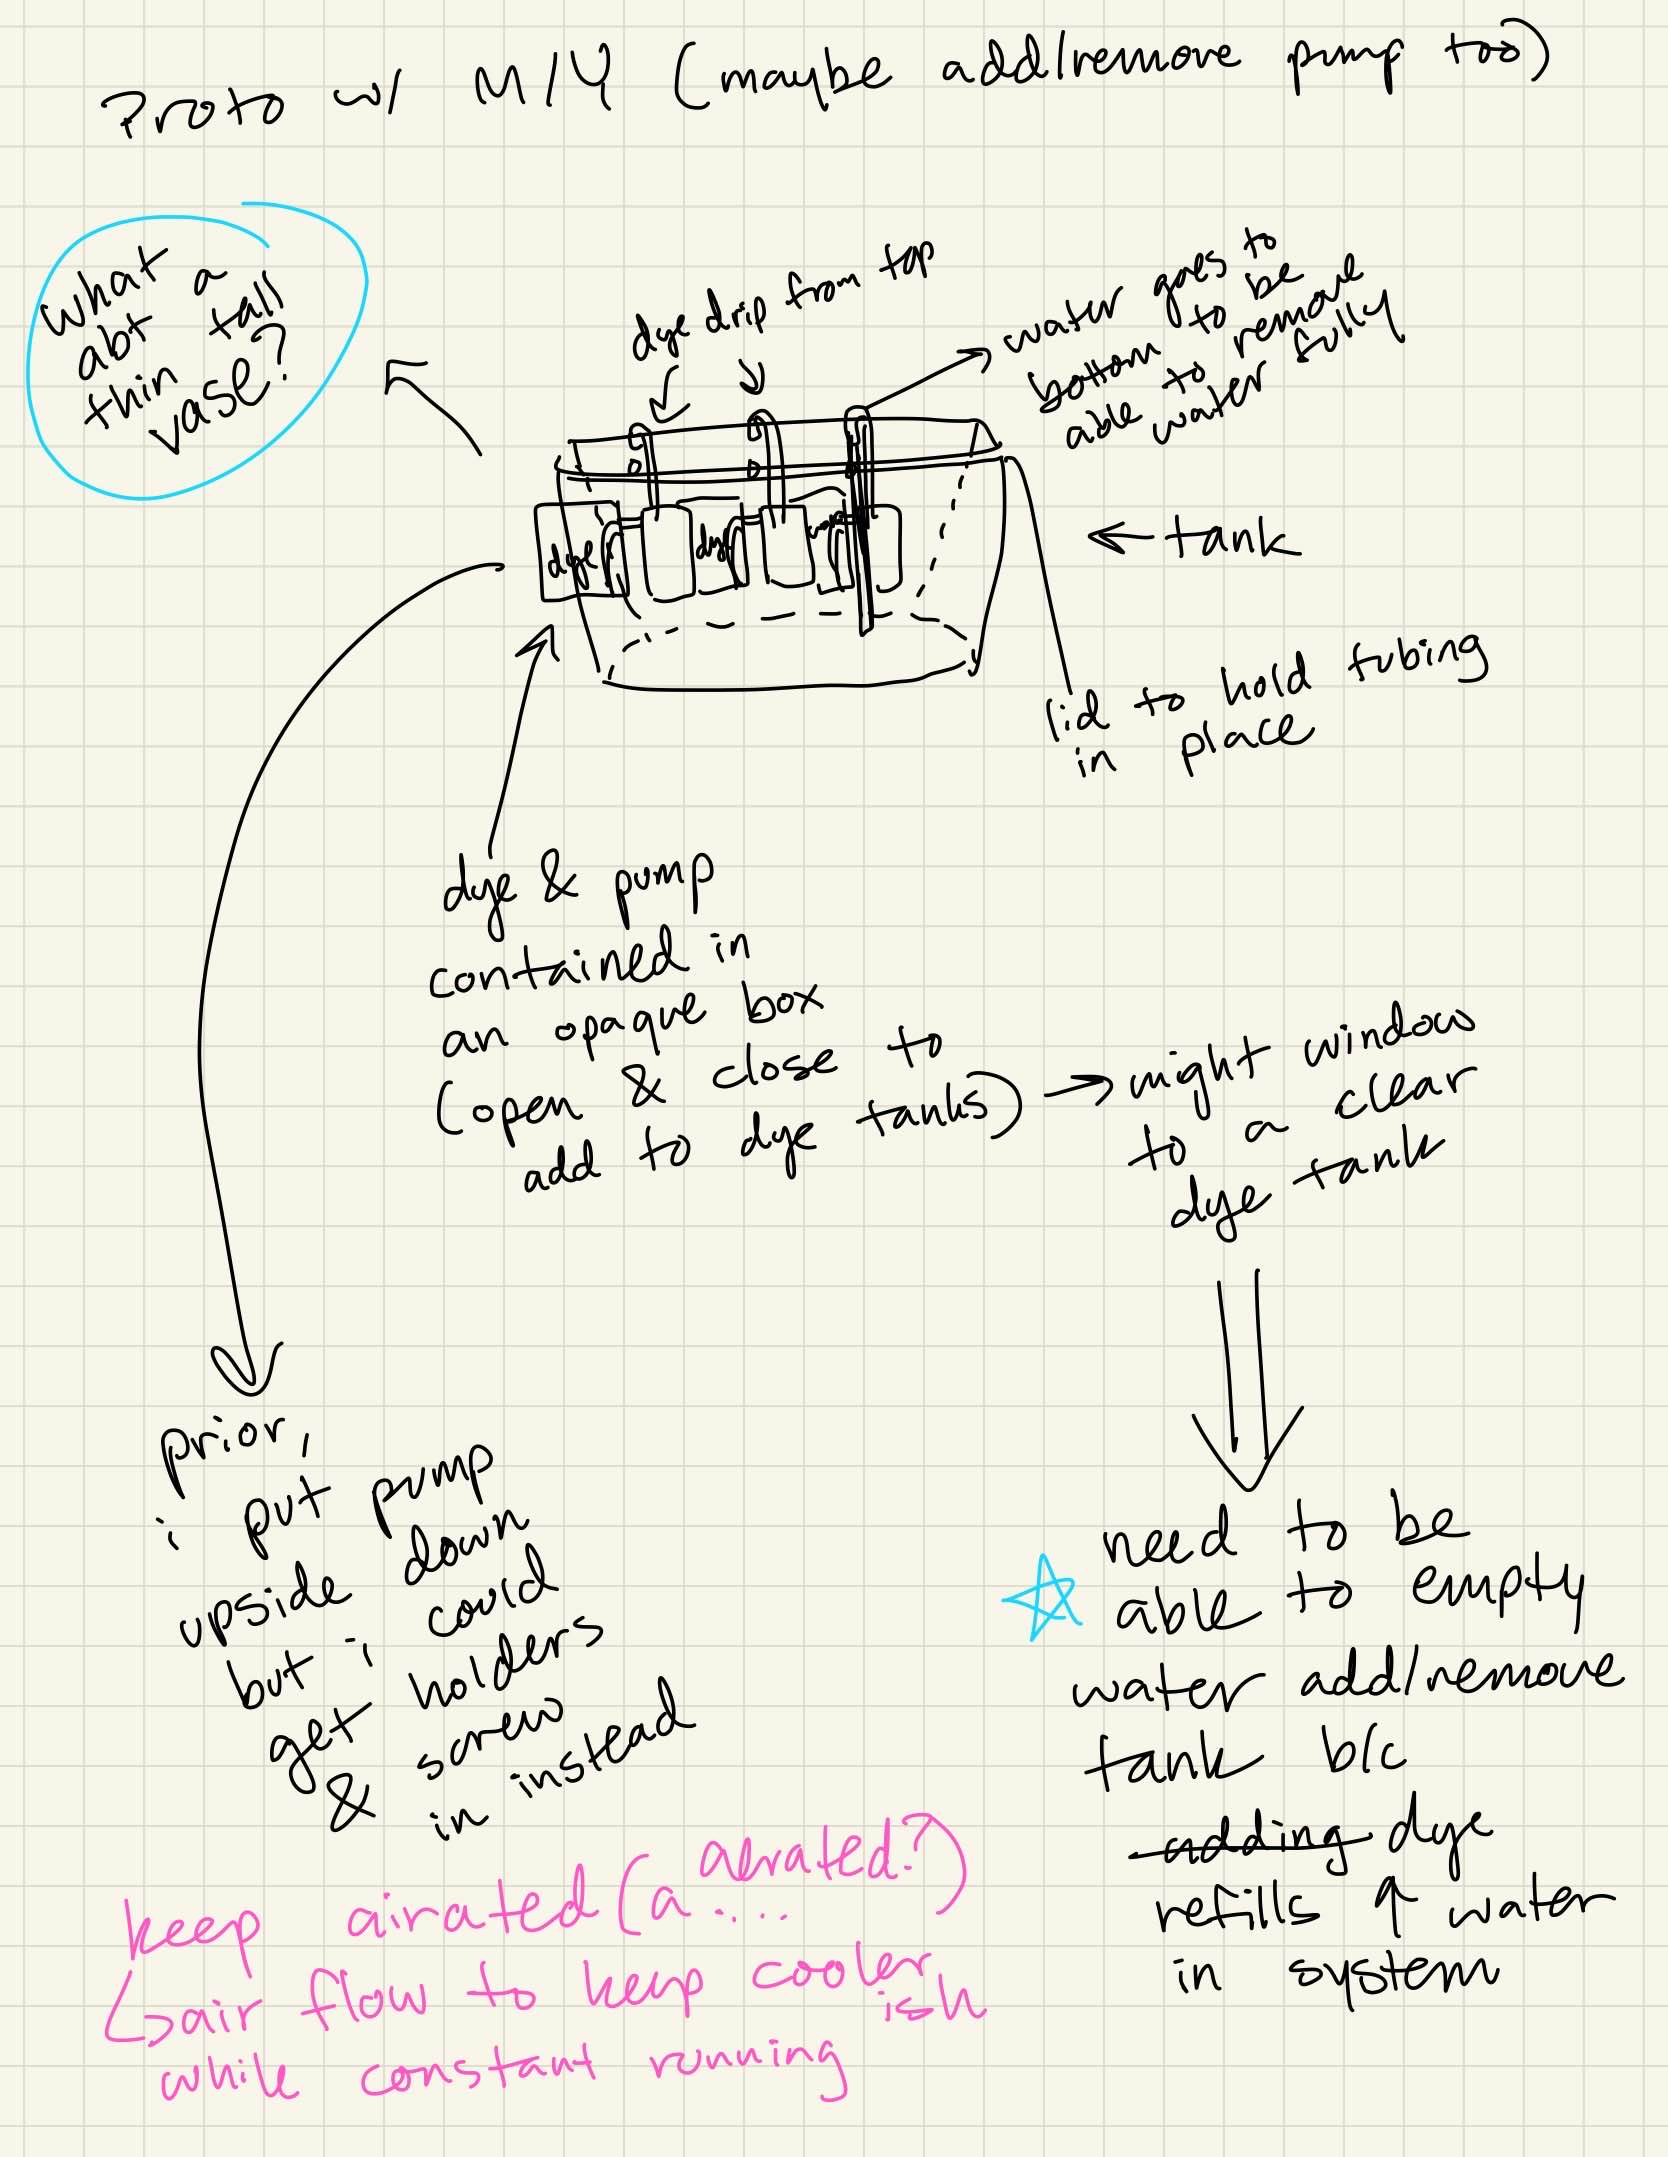 Proto w/ M/Y (maybe add/remove pump too)
what a
abt tall
thin
vase?
dye drip from top
water goes to
bottom to be
able to remove
water fully
dye
dye
← tank
lid to hold tubing
in place
dye & pump
contained in
an opaque box
(open & close to
add to dye tanks)
→ might window
to a clear
dye tank
prior,
i put pump
upside down
but i could
get holders
& screw
in instead
need to be
able to empty
water add/remove
tank b/c
adding dye
refills ↑ water
in system
keep airated (a.... aerated?)
↳ air flow to keep cooler
ish
while constant running